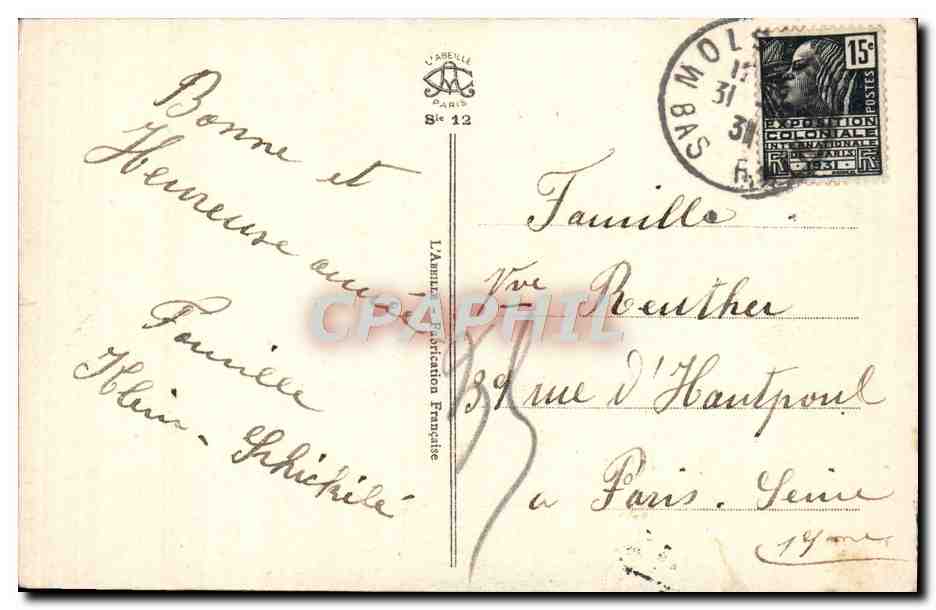 Bonne et
Heureuse année
Famille
Klein - Schickelé
L'ABEILLE
PARIS
Sie 12
L'ABEILLE Fabrication Française
CPAPHIL
MOLS
BAS
31
31
15c
POSTES
EXPOSITION
COLONIALE
INTERNATIONALE
DE PARIS
1931
Famille
Vve Reuther
39 rue d'Hautpoul
a Paris. Seine
19me